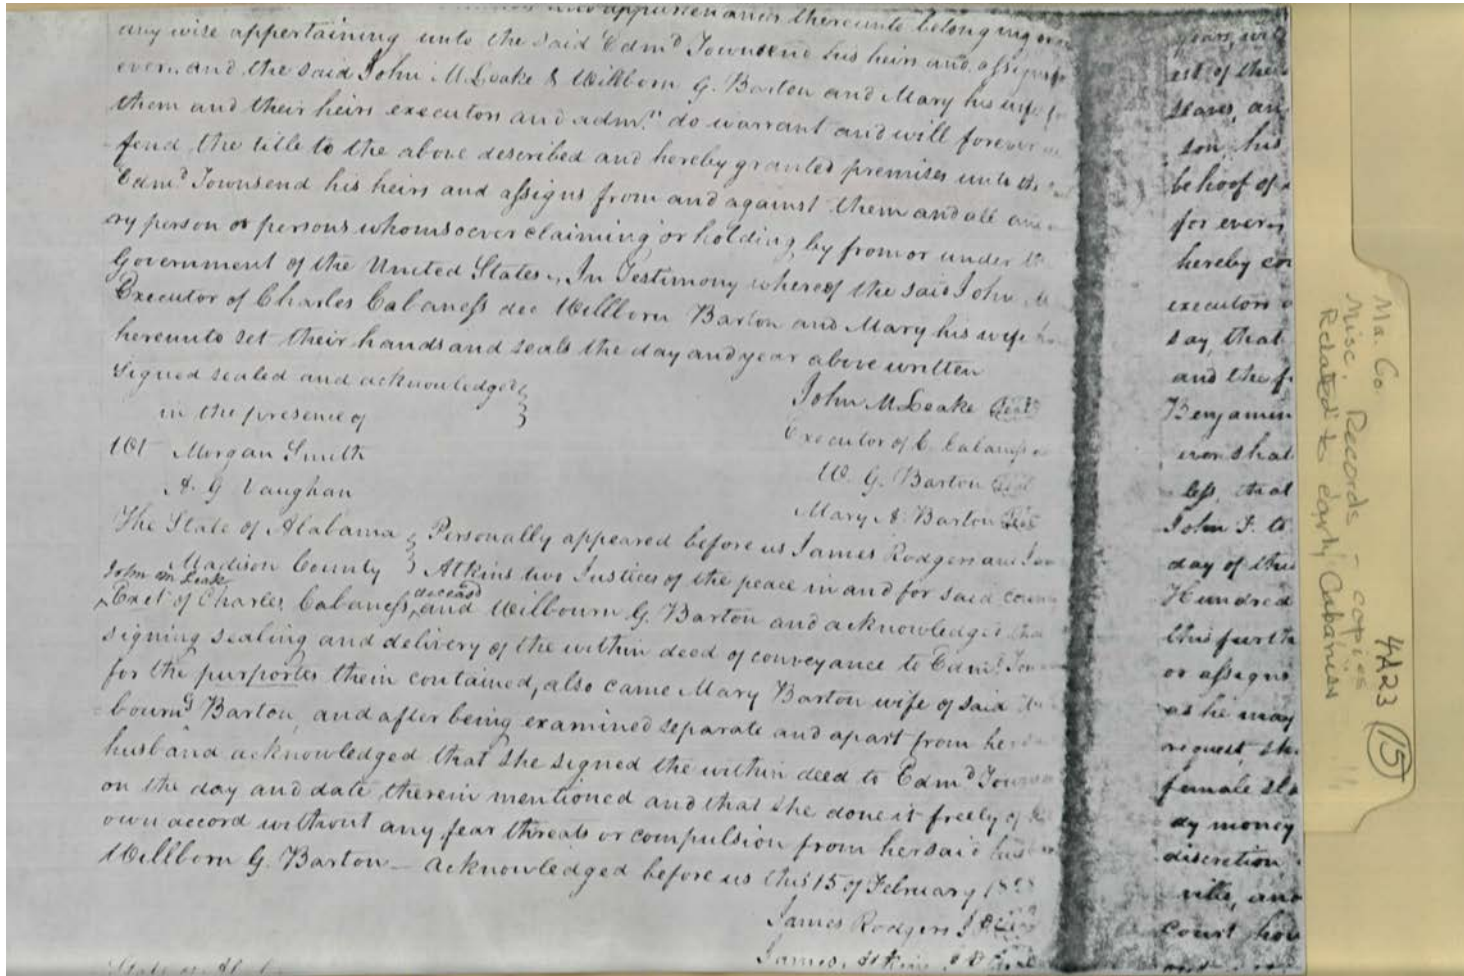 appurtenances thereunto belonging or
any wise appertaining unto the said Edmd Townsend his heirs and assigns
ever. and the said John M Leake & Willborn G. Barton and Mary his wife
them and their heirs executors and admrs do warrant and will forever
fend the title to the above described and hereby granted premises unto the
Edmd Townsend his heirs and assigns from and against them and all
ry person or persons whomsoever claiming or holding by from or under
Government of the United States. In Testimony whereof the said John M
Executor of Charles Cabaness dec Willborn Barton and Mary his wife
hereunto set their hands and seals the day and year above written
Signed sealed and acknowledged
in the presence of
Wt Morgan Smith
A. G Vaughan
John M Leake Seal
Executor of C. Cabaness
W. G. Barton Seal
Mary A. Barton Seal
The State of Alabama } Personally appeared before us James Rodgers and
Madison County } Atkins two Justices of the peace in and for said
John M Leak
Exet of Charles Cabaness, deceasd and Wilbourn G. Barton and acknowledged
signing sealing and delivery of the within deed of conveyance to Edmd
for the purportes therein contained, also came Mary Barton wife of said
bourn G Barton, and after being examined separate and apart from her
husband acknowledged that she signed the within deed to Edmd
on the day and date therein mentioned and that she done it freely of
own accord without any fear threats or compulsion from her said
Willborn G. Barton - acknowledged before us this 15 of February
James Rodgers
James
years, wit
est of the
slaves, an
son, his
behoof of
for every
hereby
executors
say, that
and the
Benjamin
ever shal
less, that
John F. to
day of
Hundred
this furth
or assigns
as he may
request, sh
female sl
dy money
discretion
ville, and
court hou
Ma. Co.
Misc. Records - copies
Related to early Cabaniss
4A23 (15)